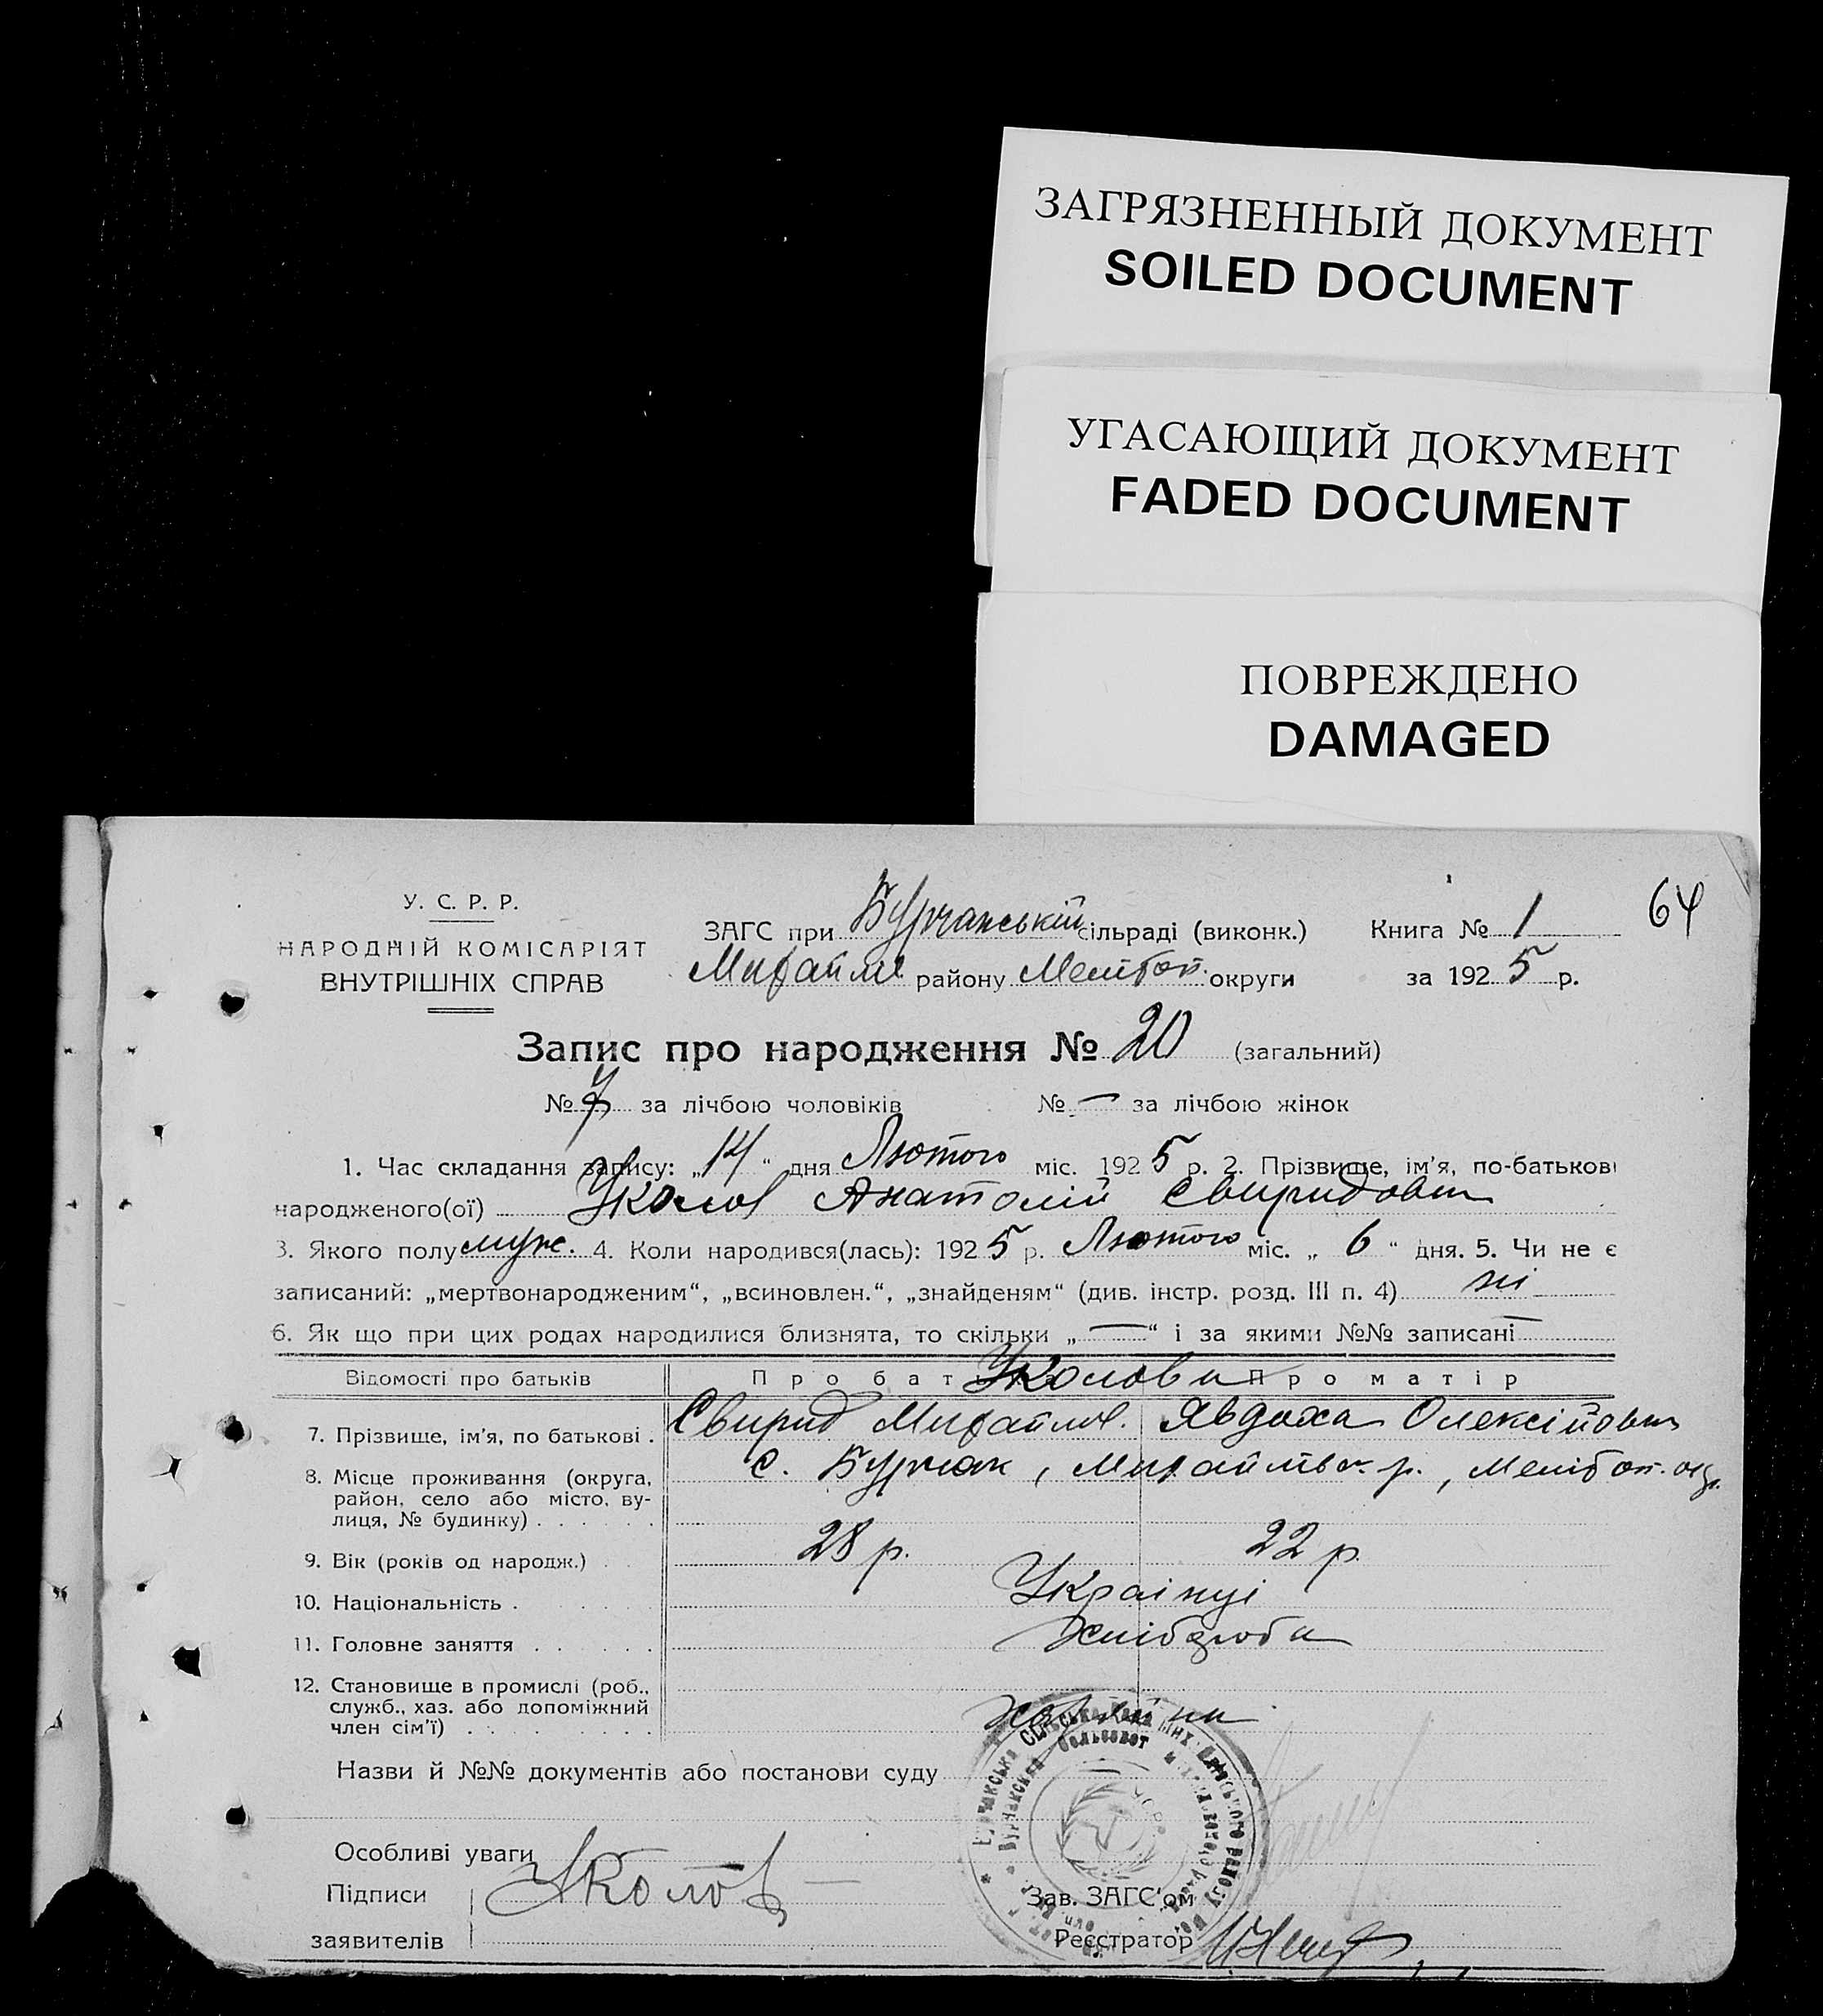 ЗАГРЯЗНЕННЫЙ ДОКУМЕНТ
SOILED DOCUMENT
УГАСАЮЩИЙ ДОКУМЕНТ
FADED DOCUMENT
ПОВРЕЖДЕНО
DAMAGED
64
У. С. Р. Р.
НАРОДНІЙ КОМІСАРІЯТ
ВНУТРІШНІХ СПРАВ
ЗАГС при Бурчакській сільраді (виконк.) Книга № 1
Михайлів. району Мелітоп. округи за 1925 р.
Запис про народження № 20 (загальний)
№ за лічбою чоловіків № — за лічбою жінок
1. Час складання запису: „14“ дня Лютого міс. 1925 р. 2. Прізвище, ім'я, по-батькові
народженого(ої) Уколов Анатолій Свиридович
3. Якого полу муж. 4. Коли народився(лась): 1925 р. Лютого міс. „6“ дня. 5. Чи не є
записаний: „мертвонародженим“, „всиновлен.“, „знайденям“ (див. інстр. розд. III п. 4) ні
6. Як що при цих родах народилися близнята, то скільки „—“ і за якими №№ записані —
Відомості про батьків Про бат Уколови Про матір
7. Прізвище, ім'я, по батькові . Свирид Михайлов. Явдоха Олексійовн
8. Місце проживання (округа, с. Бурчак, Михайлівск. р., Мелітоп. окр.
район, село або місто, ву-
лиця, № будинку) . . . . . .
9. Вік (років од народж.) . 28 р. 22 р.
10. Національність . Українці
11. Головне заняття . . . . . Хлібороби
12. Становище в промислі (роб.,
служб., хаз. або допоміжний
член сім'ї) . . . . . . .
Назви й №№ документів або постанови суду
Особливі уваги
Підписи Уколов
заявителів
Зав. ЗАГС'ом
Реєстратор